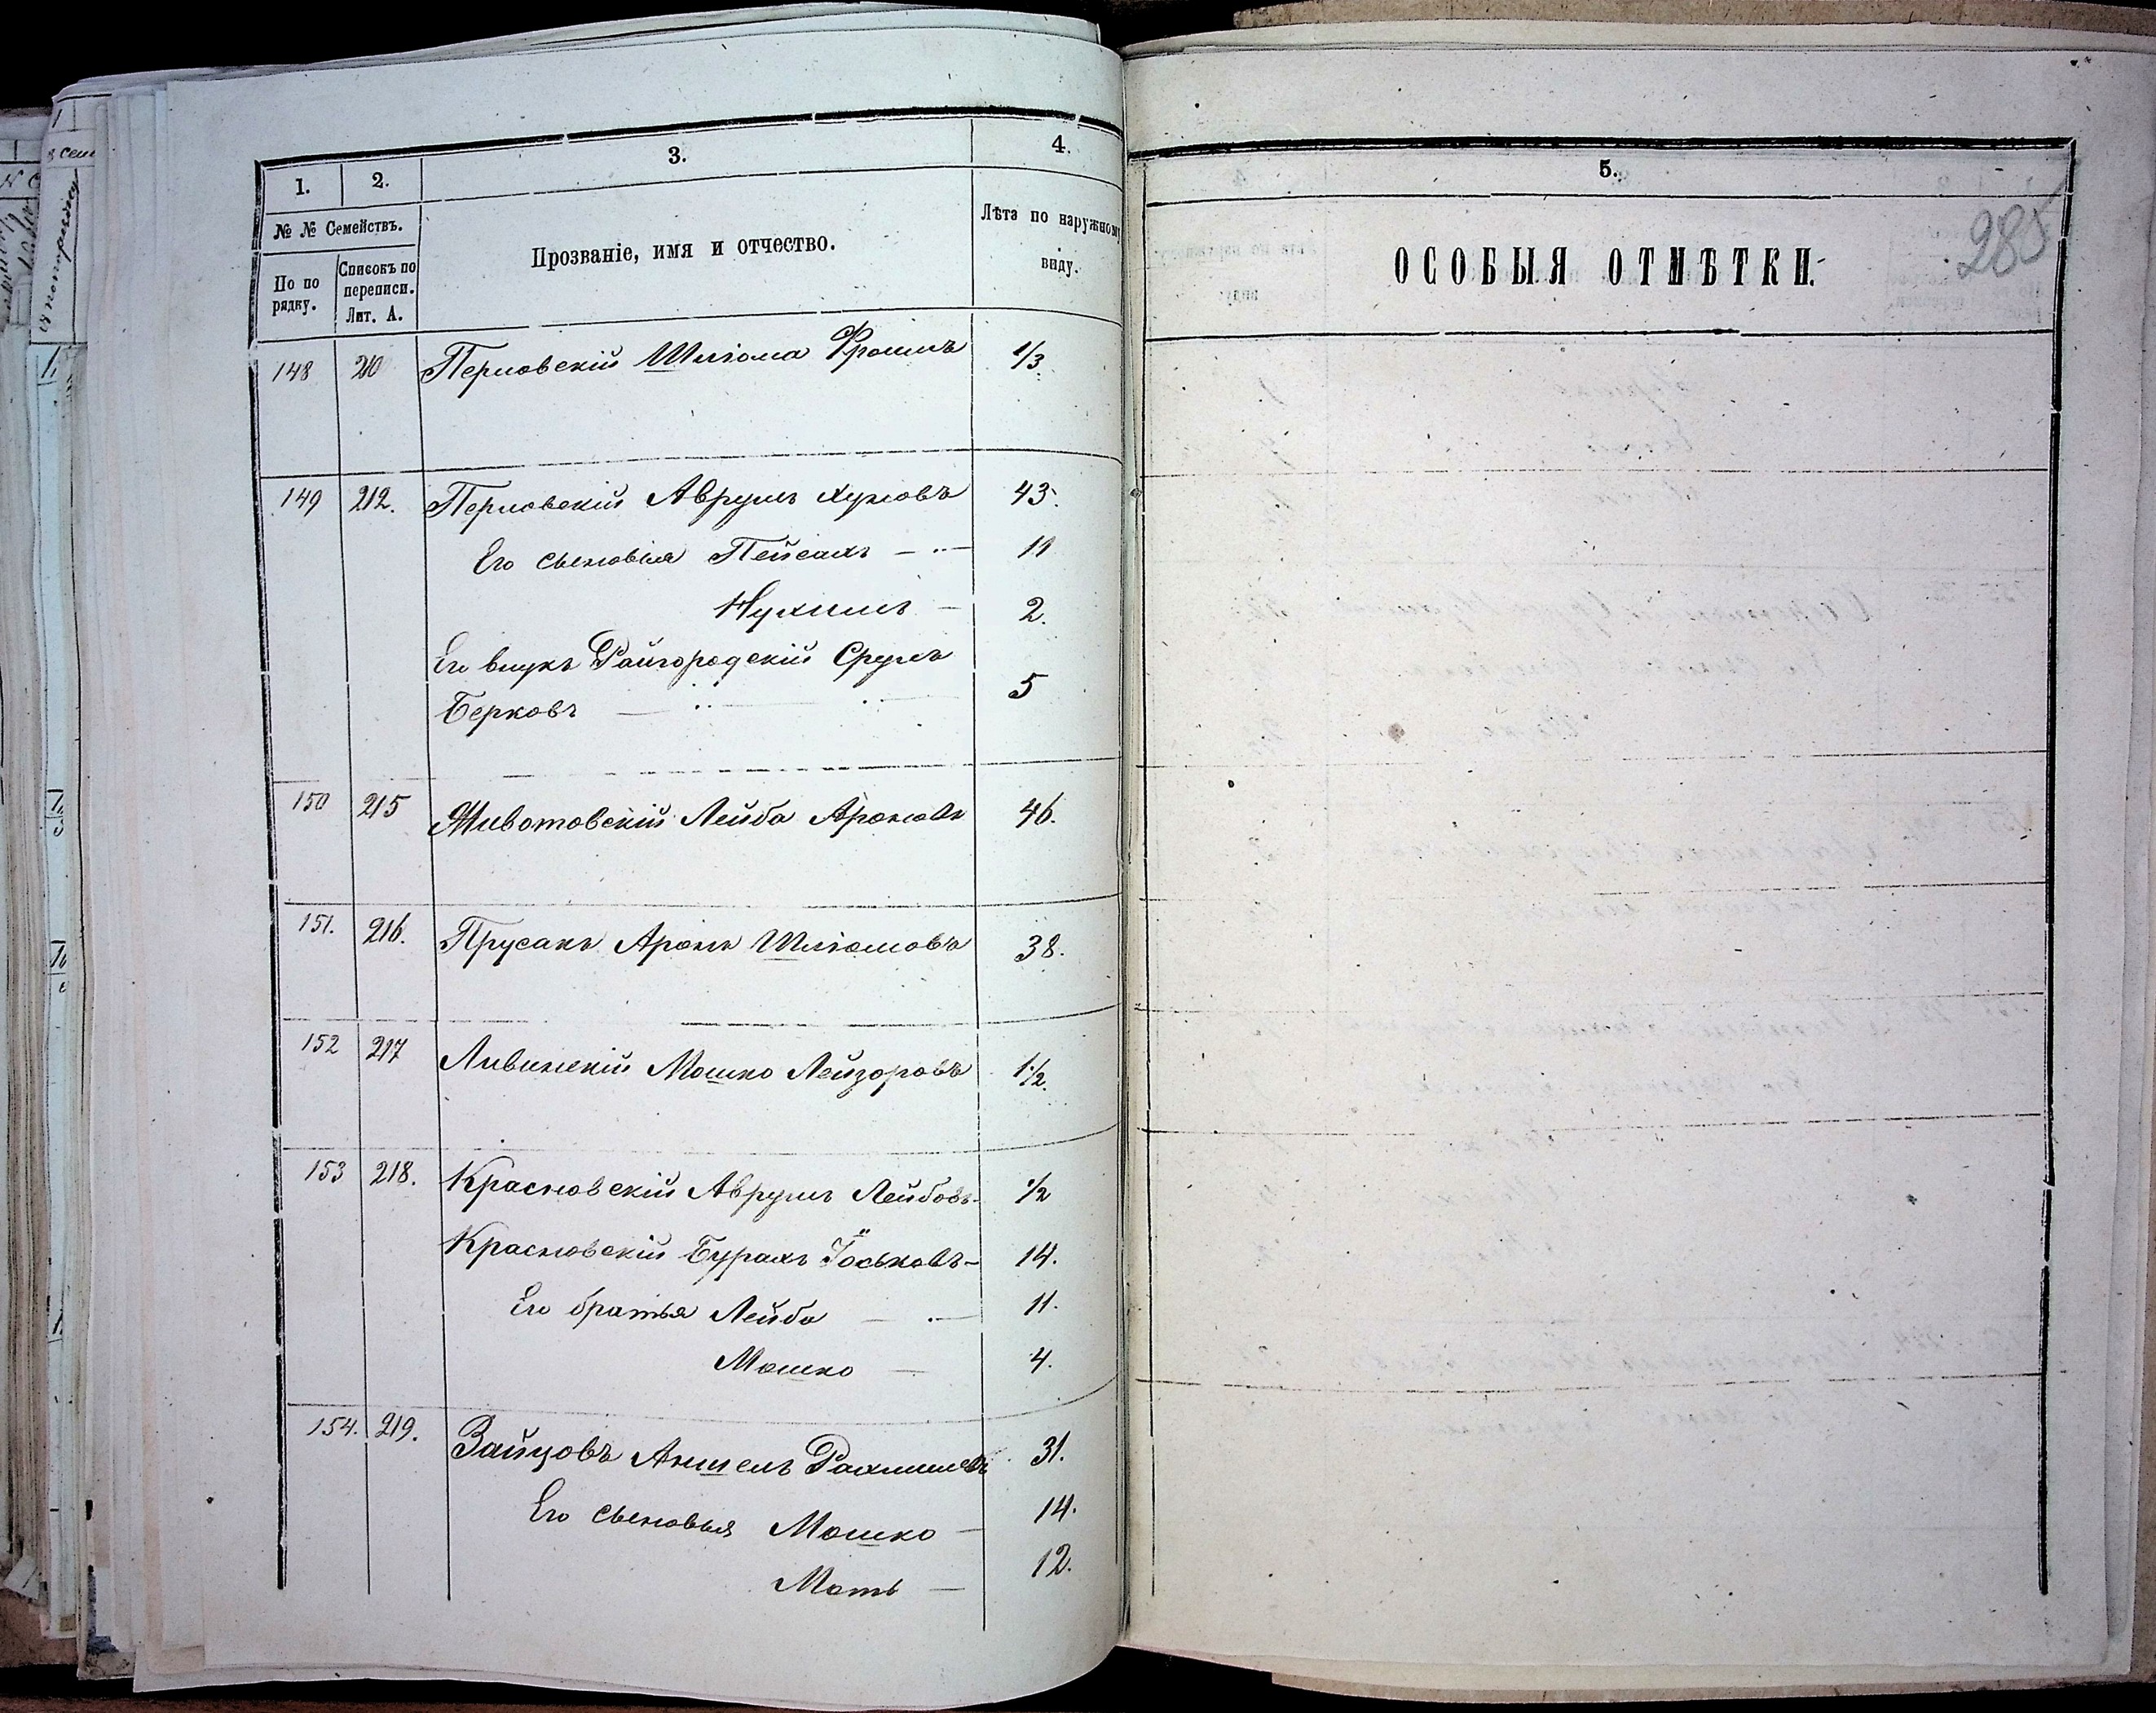 1.
2.
3.
4.
№ № Семействъ.
По по
рядку.
Списокъ по
переписи.
Лит. А.
Прозваніе, имя и отчество.
Лѣта по наружному
виду.
148 210 Перловскій Шліома Фроимъ 1/3
149 212. Перловскій Аврумъ Хуновъ 43.
Его сыновья Пейсахъ — 11
Нухимъ — 2.
Его внукъ Райгородскій Срумъ
Берковъ — 5
150 215 Животовскій Лейба Ароновъ 46.
151. 216. Прусакъ Аронъ Шліомовъ 38.
152 217 Ливинскій Мошко Лейзоровъ 1 1/2.
153 218. Красновскій Аврумъ Лейбовъ- 1/2
Красновскій Бурахъ Іоськовъ- 14.
Его братья Лейба — 11.
Мошко — 4.
154. 219. Зайцовъ Аншель Рахмилевъ 31.
Его сыновья Мошко — 14.
Моть — 12.
5.
ОСОБЫЯ ОТМѢТКИ.
285